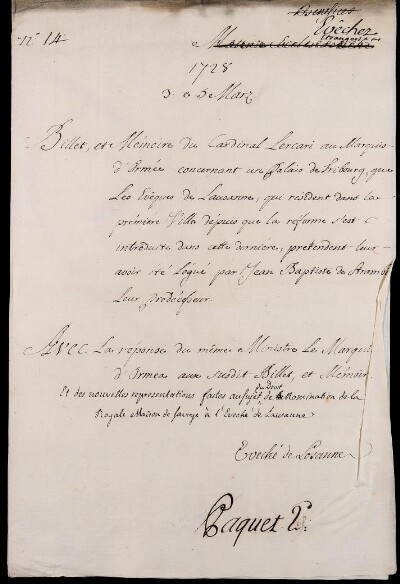 Bénéfices
Evêchez
étrangers
n.° 14
Materie Ecclesiastiche
1728
3 e 5 Marz
Billet, et Mémoire du Cardinal Lercari au Marquis
d'Ormée concernant un Palais de Fribourg, que
Les Evêques de Lausanne, qui résident dans la
première Ville depuis que la réforme s'est
introduite dans cette dernière, prétendent leur
avoir été légué par Jean Baptiste de Stramb
Leur prédécesseur.
Avec La reponse du même Ministre Le Marqui
d'Ormea aux susdit Billet, et Mémoir
Et des nouvelles représentations faites au sujet du Droit de Nomination de la
Royale Maison de Savoye à l'Evêché de Lausanne
Eveché de Losanne
Paquet 2.°